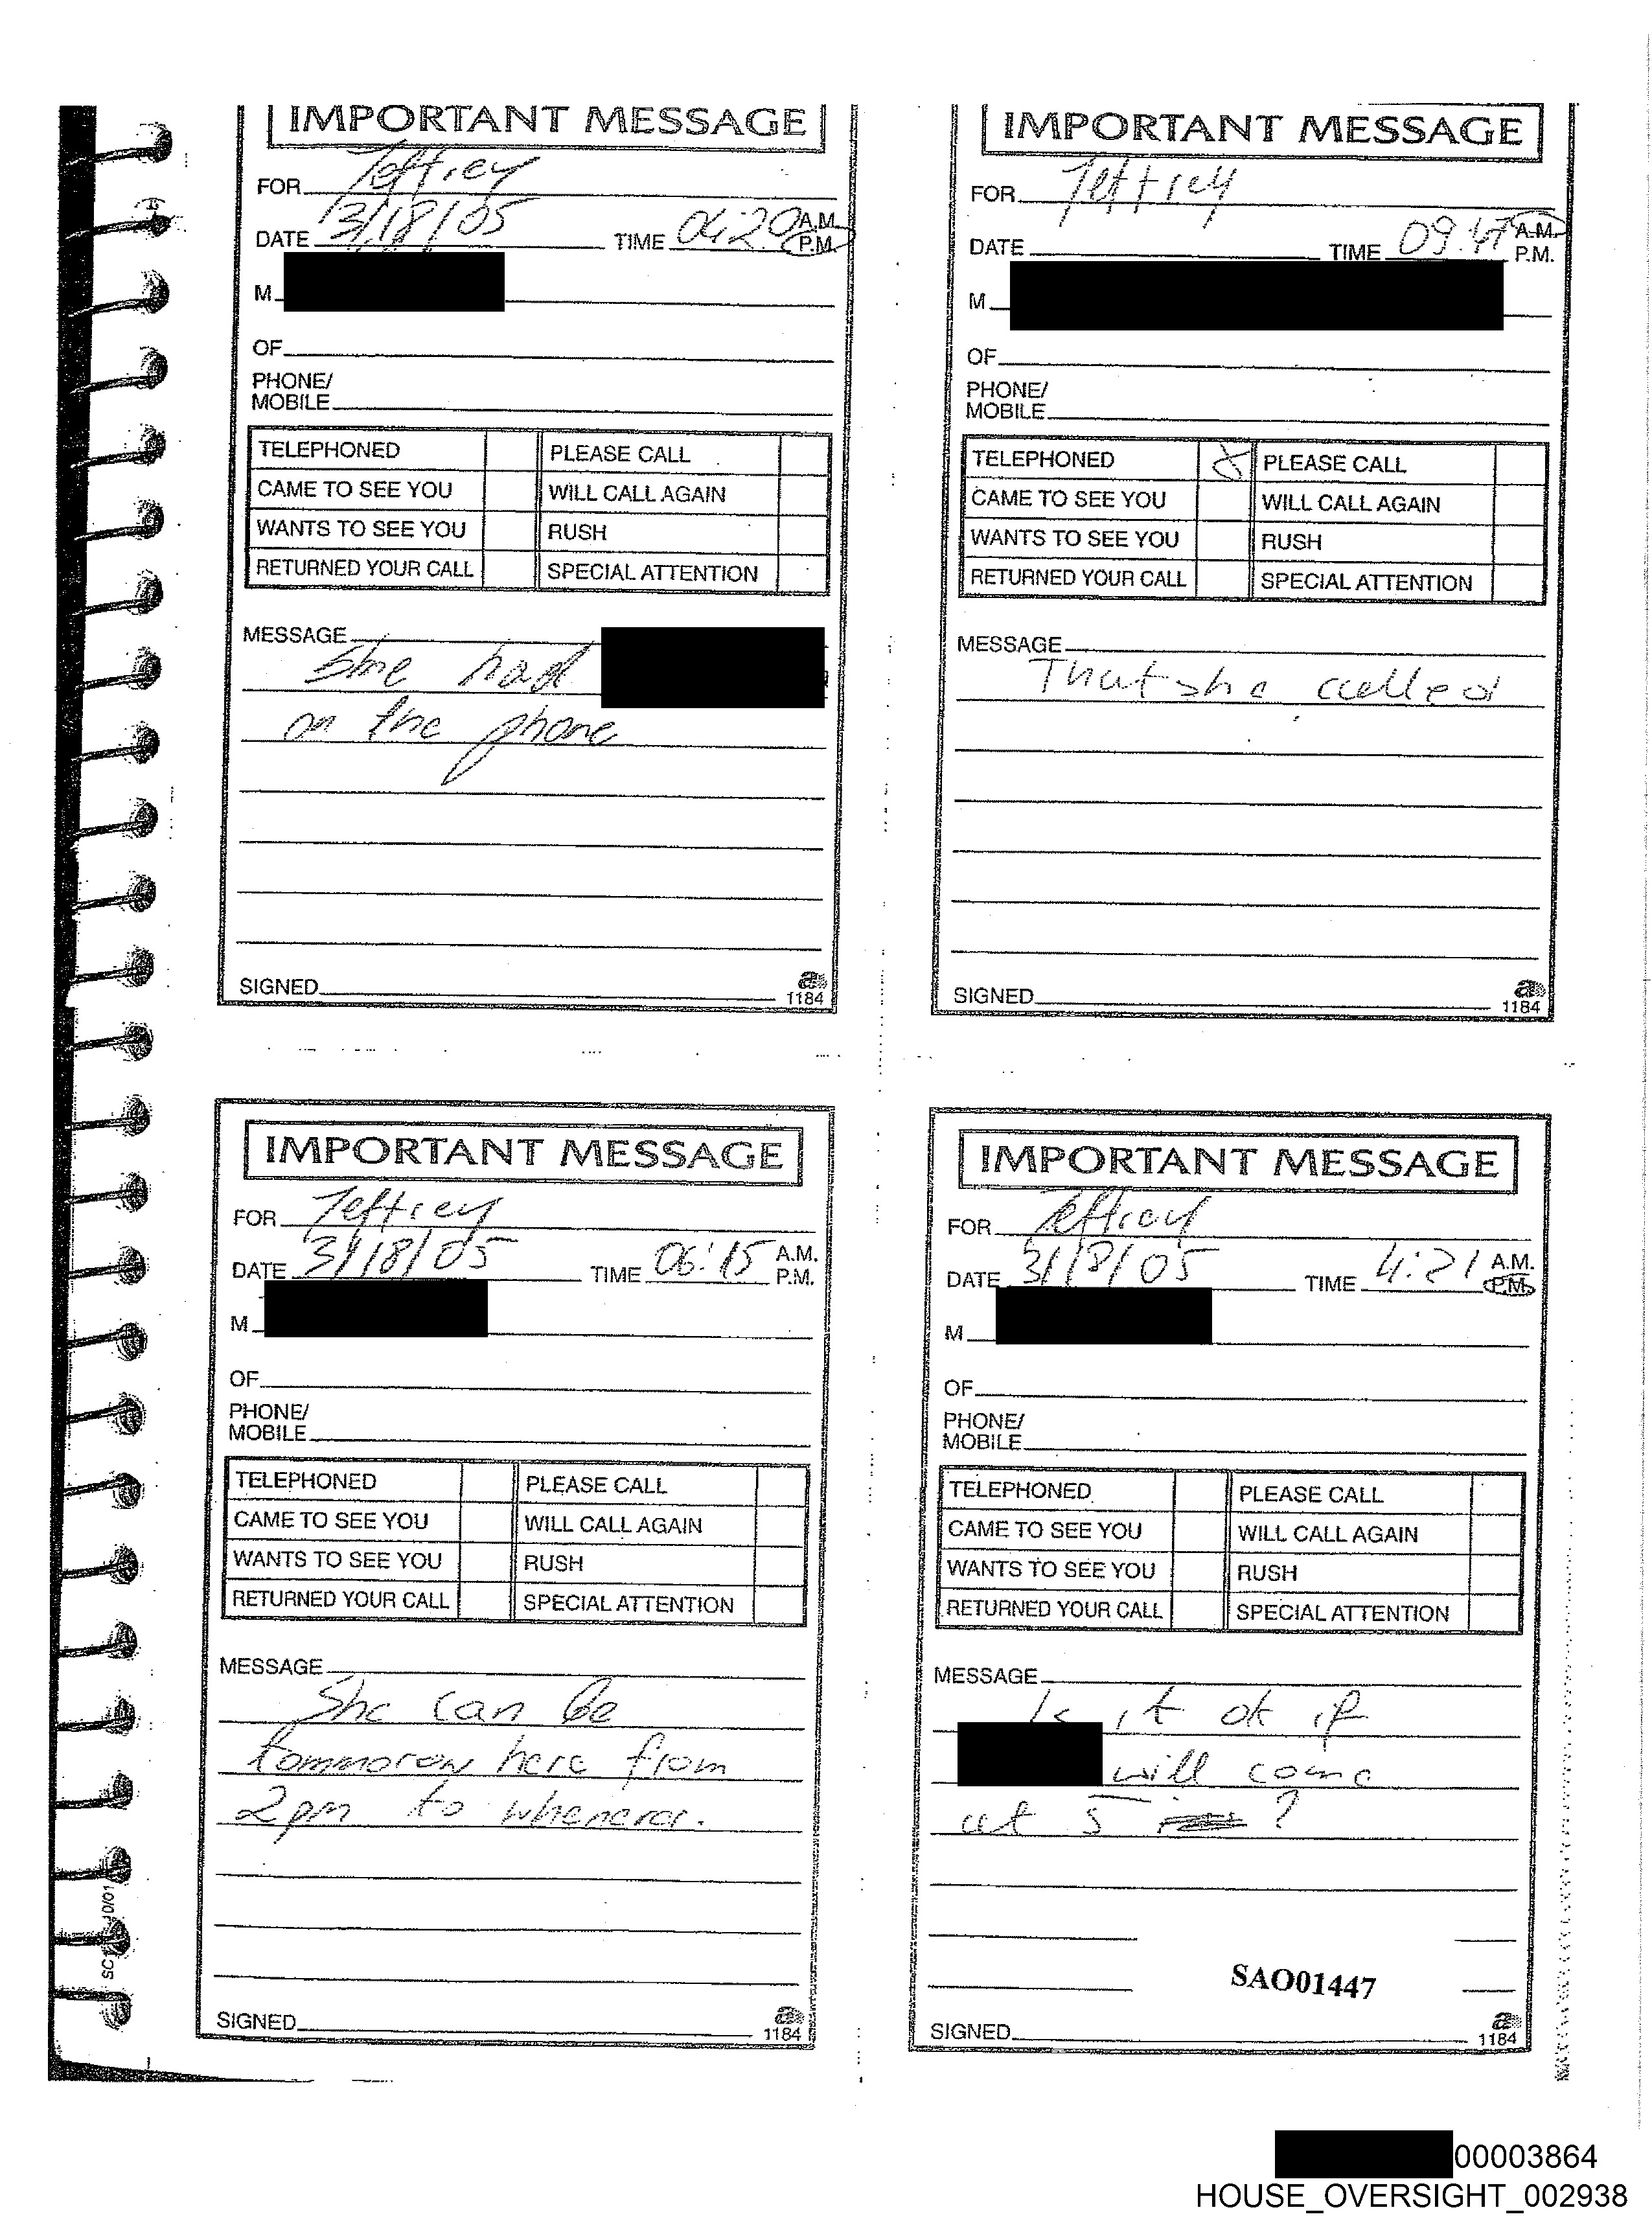 IMPORTANT MESSAGE
FOR Jeffrey
DATE 3/18/05 TIME 04:20 A.M.
P.M.
M
OF
PHONE/
MOBILE
TELEPHONED PLEASE CALL
CAME TO SEE YOU WILL CALL AGAIN
WANTS TO SEE YOU RUSH
RETURNED YOUR CALL SPECIAL ATTENTION
MESSAGE
She had
on the phone
SIGNED
a
1184
IMPORTANT MESSAGE
FOR Jeffrey
DATE TIME 09:47 A.M.
P.M.
M
OF
PHONE/
MOBILE
TELEPHONED X PLEASE CALL
CAME TO SEE YOU WILL CALL AGAIN
WANTS TO SEE YOU RUSH
RETURNED YOUR CALL SPECIAL ATTENTION
MESSAGE
That she called
SIGNED
a
1184
IMPORTANT MESSAGE
FOR Jeffrey
DATE 3/18/05 TIME 06:15 A.M.
P.M.
M
OF
PHONE/
MOBILE
TELEPHONED PLEASE CALL
CAME TO SEE YOU WILL CALL AGAIN
WANTS TO SEE YOU RUSH
RETURNED YOUR CALL SPECIAL ATTENTION
MESSAGE
She can be
tommorow here from
2pm to whenever.
SIGNED
a
1184
IMPORTANT MESSAGE
FOR Jeffrey
DATE 3/18/05 TIME 4:21 A.M.
P.M.
M
OF
PHONE/
MOBILE
TELEPHONED PLEASE CALL
CAME TO SEE YOU WILL CALL AGAIN
WANTS TO SEE YOU RUSH
RETURNED YOUR CALL SPECIAL ATTENTION
MESSAGE
Is it ok if
will come
at 5 ?
SAO01447
SIGNED
a
1184
00003864
HOUSE_OVERSIGHT_002938